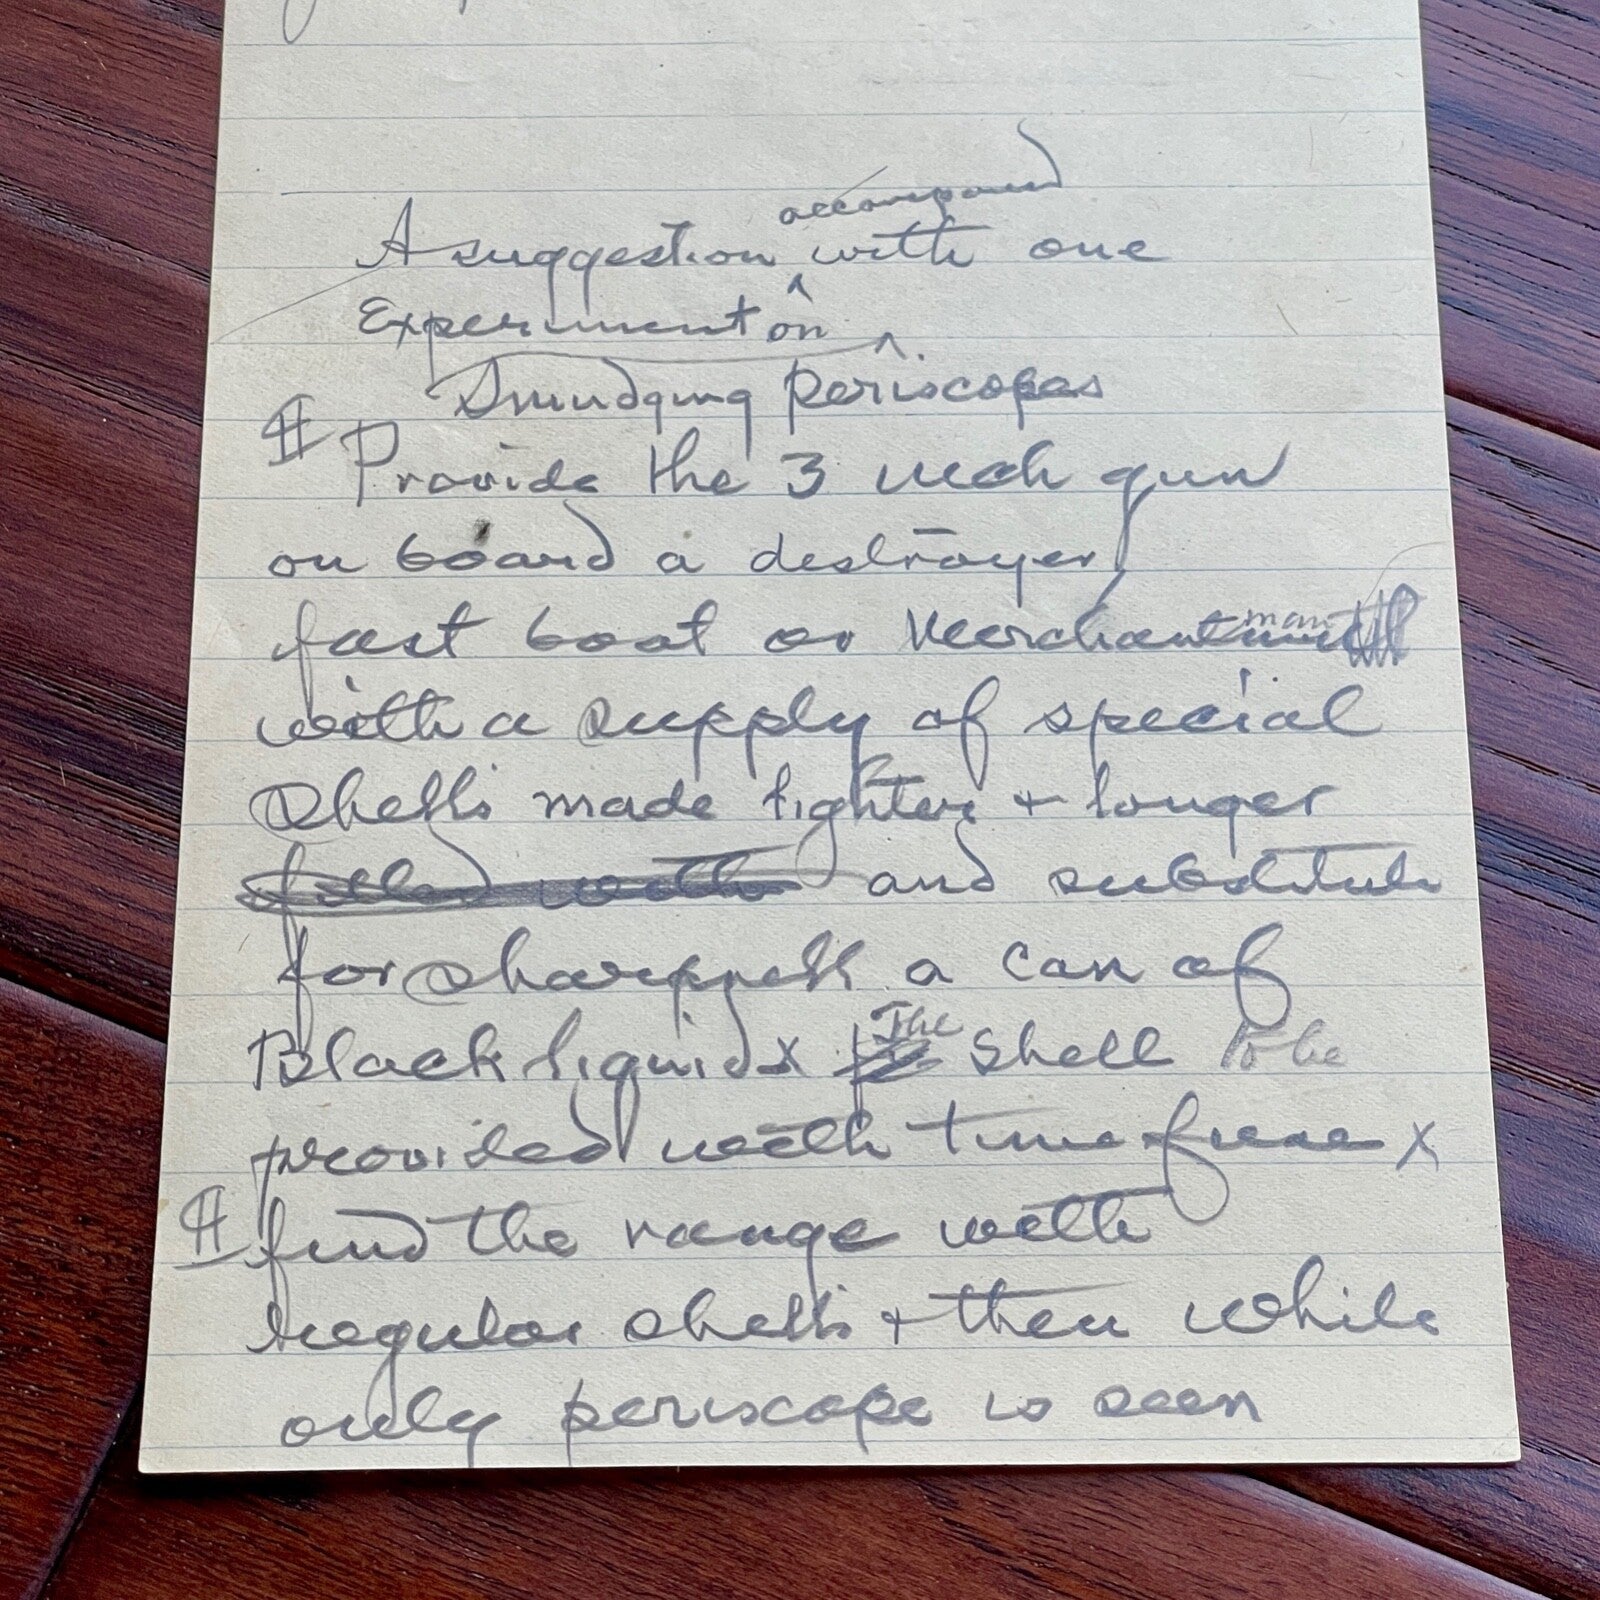 accompanied
A suggestion ^ with one
Experiment on ^.
Smudging periscopes
Provide the 3 inch gun
on board a destroyer
fast boat or Merchantman
with a supply of special
Shells made lighter + longer
filled with and substitute
for sharpnell a can of
Black liquid x The Shell to be
provided with time fuse x
find the range with
regular shells + then while
only periscope is seen